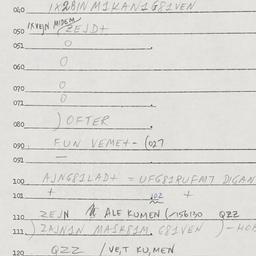 040 1X2BINM1KANAN1G81VEN
1KVEJN MIDEM
050 (ZEJD+
051 O
060 O
070 O
071 O
080 ) OFTER
090 FUN VEMET- (027
091 —
100 AJNG81LAD+ = UFG81RUFM7 DIGAN
101 + 102 +
110 ZEJN ALE KUMEN (-156130 QZZ
111 ) ZAJN1N MA1K81M. G81VEN )-HOB
120 QZZ / VE,T KU,MEN